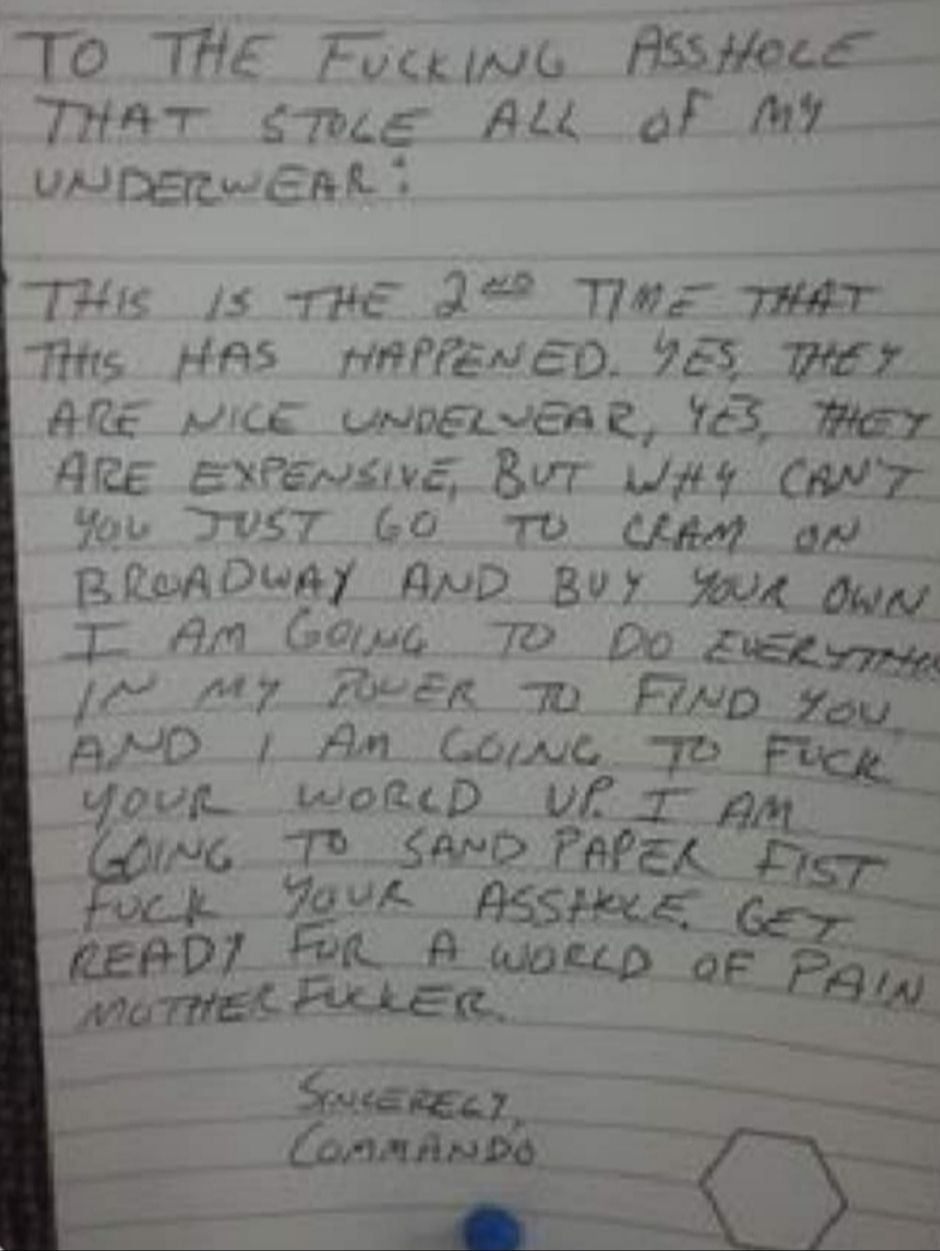 TO THE FUCKING ASSHOLE
THAT STOLE ALL OF MY
UNDERWEAR:
THIS IS THE 2ND TIME THAT
THIS HAS HAPPENED. YES, THEY
ARE NICE UNDERWEAR, YES, THEY
ARE EXPENSIVE, BUT WHY CAN'T
YOU JUST GO TO CRAM ON
BROADWAY AND BUY YOUR OWN
I AM GOING TO DO EVERYTHIN
IN MY POWER TO FIND YOU
AND I AM GOING TO FUCK
YOUR WORLD UP. I AM
GOING TO SAND PAPER FIST
FUCK YOUR ASSHOLE. GET
READY FOR A WORLD OF PAIN
MOTHER FUCKER.
SINCERELY,
COMMANDO